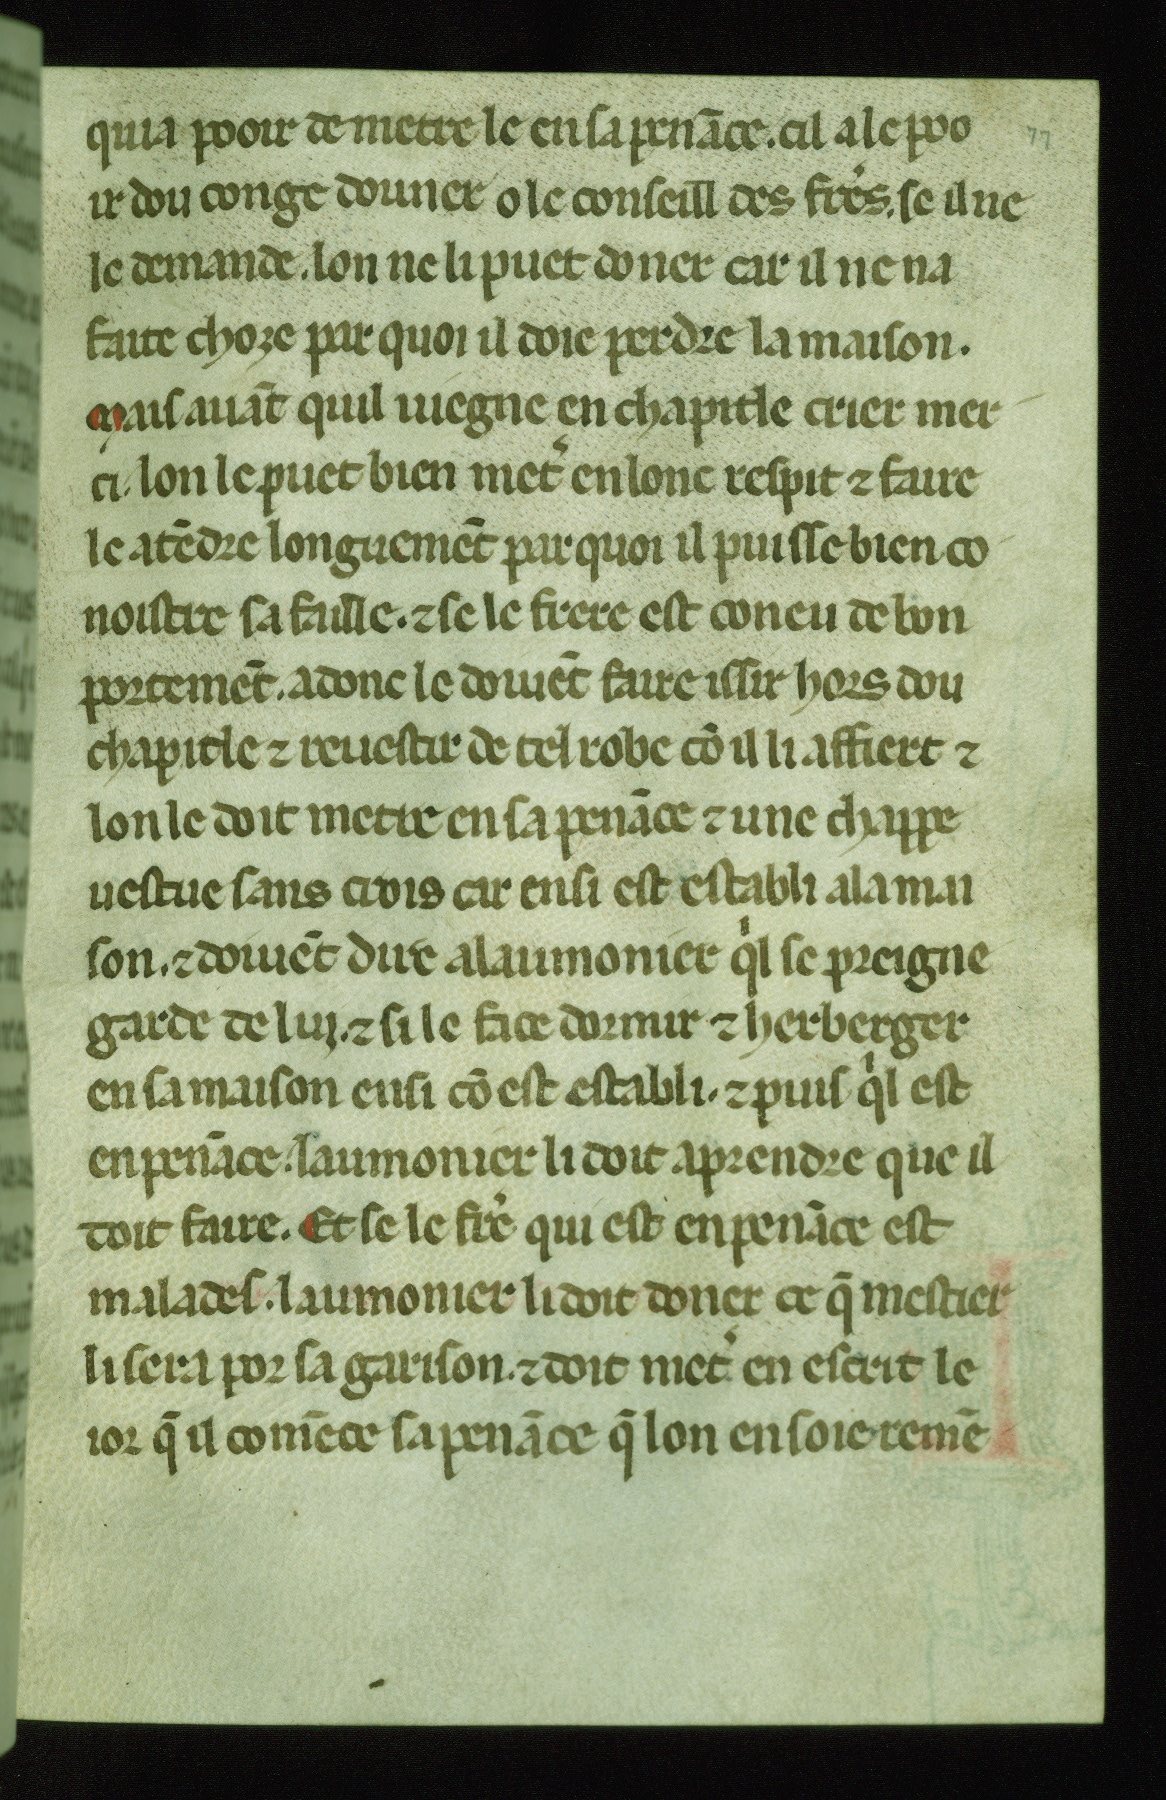 77
qui a pooir de metre le en sa penāce. cil a le poo
ir dou conge douner o le conseill des frēs. se il ne
le demande. lon ne li puet doner car il ne na
faite choze par quoi il doie perdre la maison.
Mais auāt quil uiegne en chapitle crier mer
ci. lon le puet bien met᾽ en lonc respit ⁊ faire
le atēdre longuemēt par quoi il puisse bien co
noistre sa faille. ⁊ se le frere est coneu de bon
portemēt. adonc le doiuēt faire issir hors dou
chapitle ⁊ reuestir de tel robe cō il li affiert ⁊
lon le doit metre en sa penāce ⁊ une chappe
uestue sans crois car ensi est establi a la mai
son. ⁊ doiuēt dire a laumonier qͥl se preigne
garde de lui. ⁊ si le face dormir ⁊ herberger
en sa maison ensi cō est establi. ⁊ puis qͥl est
en penāce. laumonier li doit aprendre que il
doit faire. Et se le frē qui est en penāce est
malades. laumonier li doit doner ce q̄ mestier
li sera por sa garison. ⁊ doit met᾽ en escrit le
ior q̄ il comēce sa penāce q̄ lon en soie remē